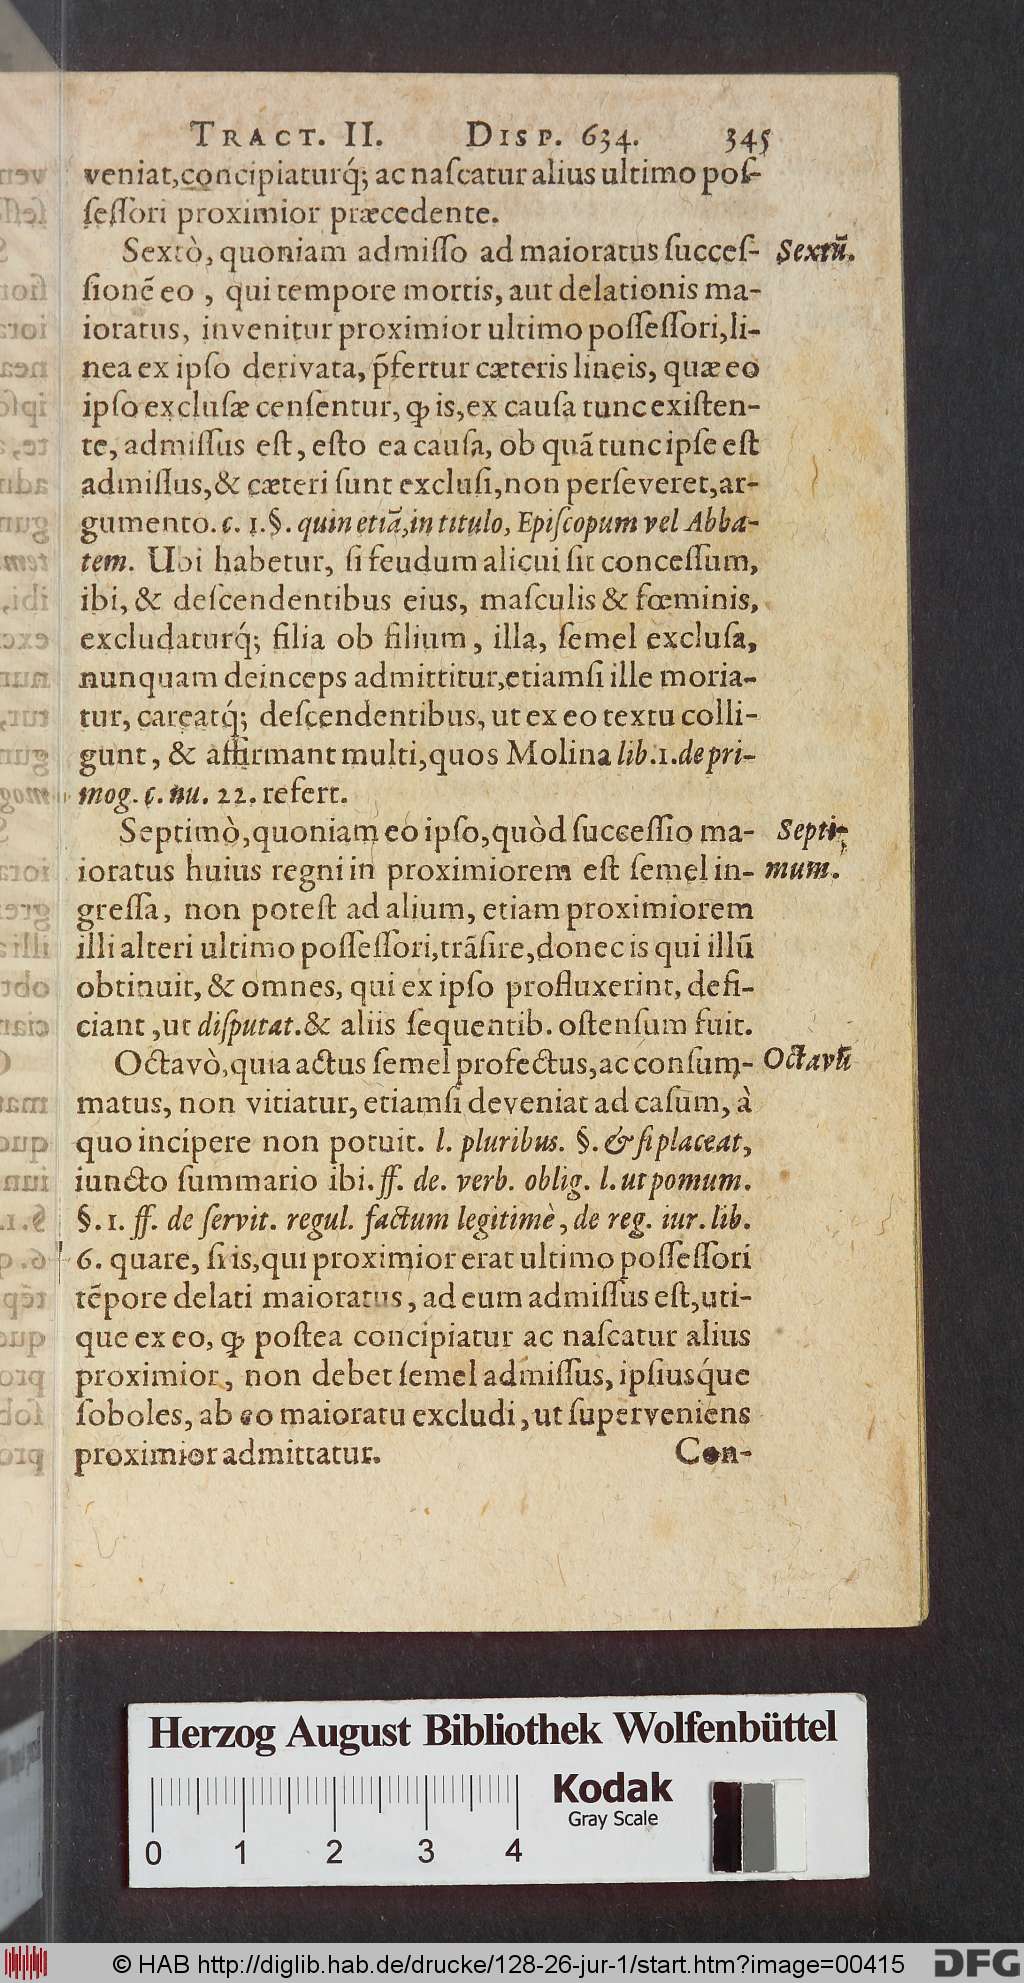 TRACT. II. DISP. 634. 345
veniat,concipiaturq́; ac naſcatur alius ultimo poſ-
ſeſſori proximior præcedente.
Sextò, quoniam admiſſo ad maioratus ſucceſ- Sextū.
ſionē eo , qui tempore mortis, aut delationis ma-
ioratus, invenitur proximior ultimo poſſeſſori,li-
nea ex ipſo derivata, p̄fertur cæteris lineis, quæ eo
ipſo excluſæ cenſentur, ꝙ is,ex cauſa tunc exiſten-
te, admiſſus eſt, eſto ea cauſa, ob quā tunc ipſe eſt
admiſſus,& cæteri ſunt excluſi,non perſeveret,ar-
gumento. c. 1.§. quin etiā,in titulo, Epiſcopum vel Abba-
tem. Ubi habetur, ſi feudum alicui ſit conceſſum,
ibi, & deſcendentibus eius, maſculis & fœminis,
excludaturq́; filia ob filium, illa, ſemel excluſa,
nunquam deinceps admittitur,etiamſi ille moria-
tur, careatq́; deſcendentibus, ut ex eo textu colli-
gunt, & affirmant multi,quos Molina lib.1.de pri-
mog. c. nu. 22. refert.
Septimò,quoniam eo ipſo,quòd ſucceſſio ma- Septi-
ioratus huius regni in proximiorem eſt ſemel in- mum.
greſſa, non poteſt ad alium, etiam proximiorem
illi alteri ultimo poſſeſſori,trāſire,donec is qui illū
obtinuit, & omnes, qui ex ipſo profluxerint, defi-
ciant ,ut diſputat.& aliis ſequentib. oſtenſum fuit.
Octavò,quia actus ſemel profectus,ac conſum- Octavū
matus, non vitiatur, etiamſi deveniat ad caſum, à
quo incipere non potuit. l. pluribus. §. & ſi placeat,
iuncto ſummario ibi. ff. de. verb. oblig. l. ut pomum.
§. 1. ff. de ſervit. regul. factum legitimè, de reg. iur. lib.
6. quare, ſi is,qui proximior erat ultimo poſſeſſori
tēpore delati maioratus, ad eum admiſſus eſt,uti-
que ex eo, ꝙ poſtea concipiatur ac naſcatur alius
proximior, non debet ſemel admiſſus, ipſiusq́ue
ſoboles, ab eo maioratu excludi, ut ſuperveniens
proximior admittatur. Con-
Herzog August Bibliothek Wolfenbüttel
Kodak
Gray Scale
0 1 2 3 4
© HAB http://diglib.hab.de/drucke/128-26-jur-1/start.htm?image=00415 DFG